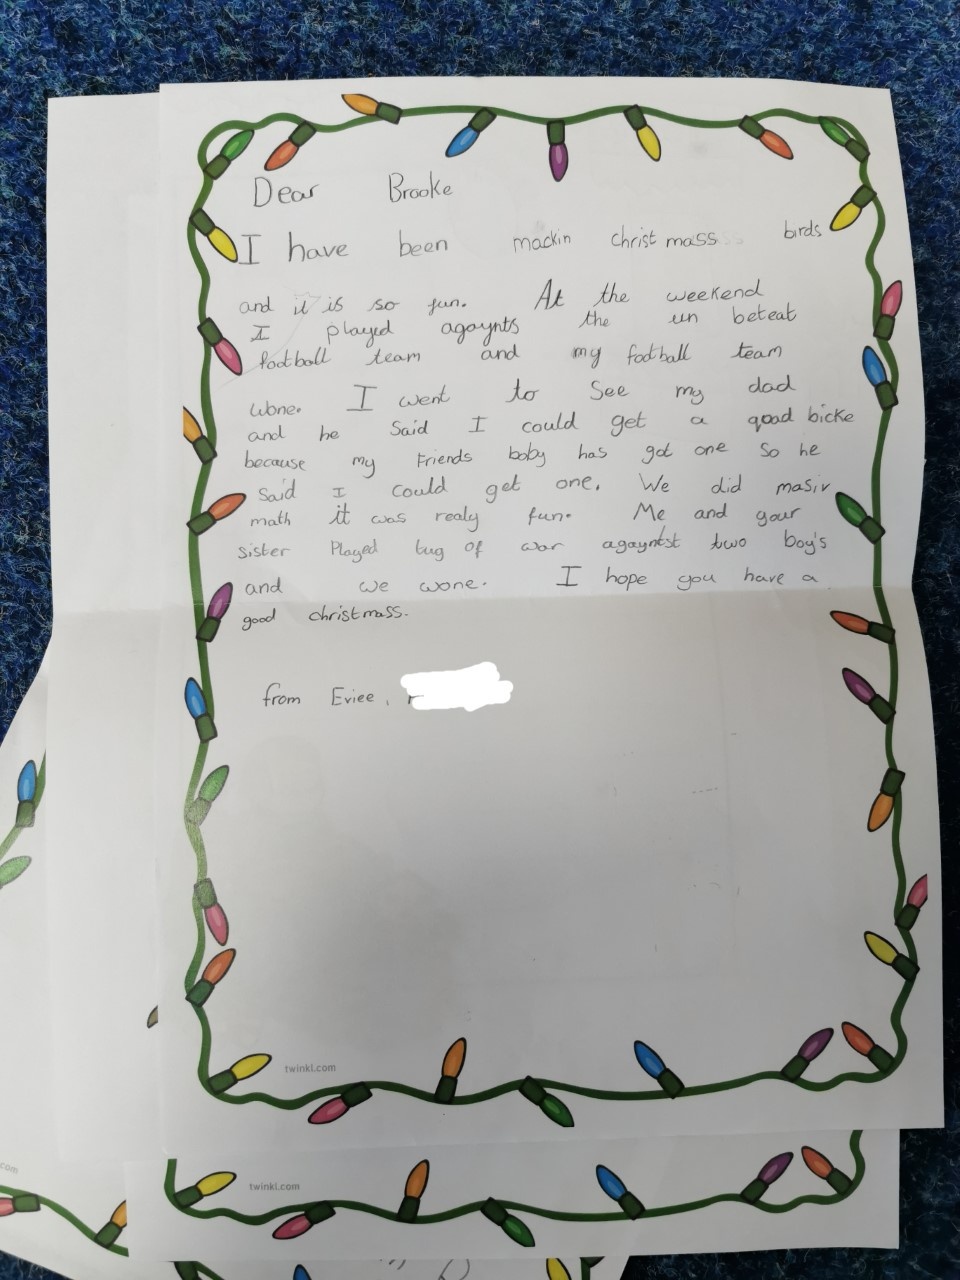 Dear Brooke
I have been mackin christmass birds
and it is so fun. At the weekend
I played agaynts the un beteat
football team and my football team
wone. I went to See my dad
and he Said I could get a qoad bicke
because my Friends boby has got one So he
Said I could get one. We did masiv
math it was realy fun. Me and your
sister Played tug of war agayntst two boy's
and we wone. I hope you have a
good christmass.
from Eviee,
twinkl.com
twinkl.com
.com